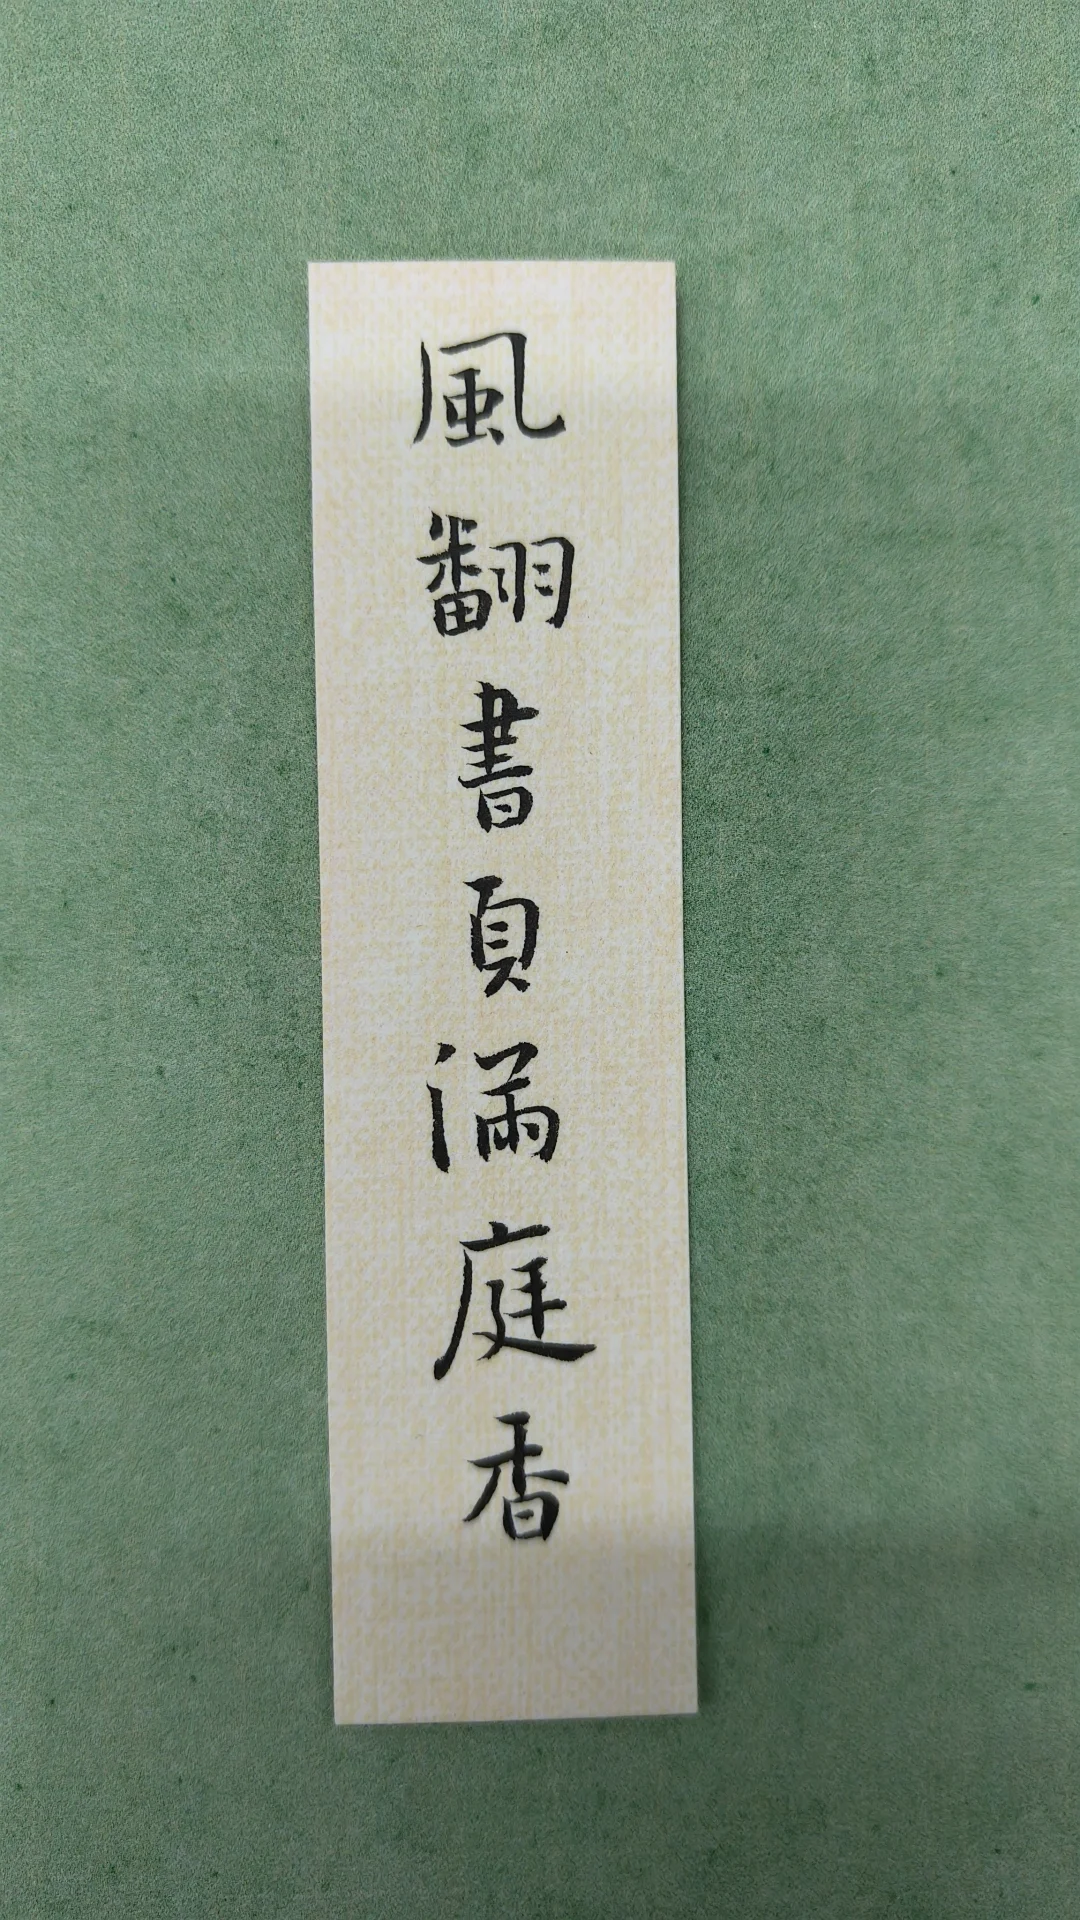 風翻書頁滿庭香